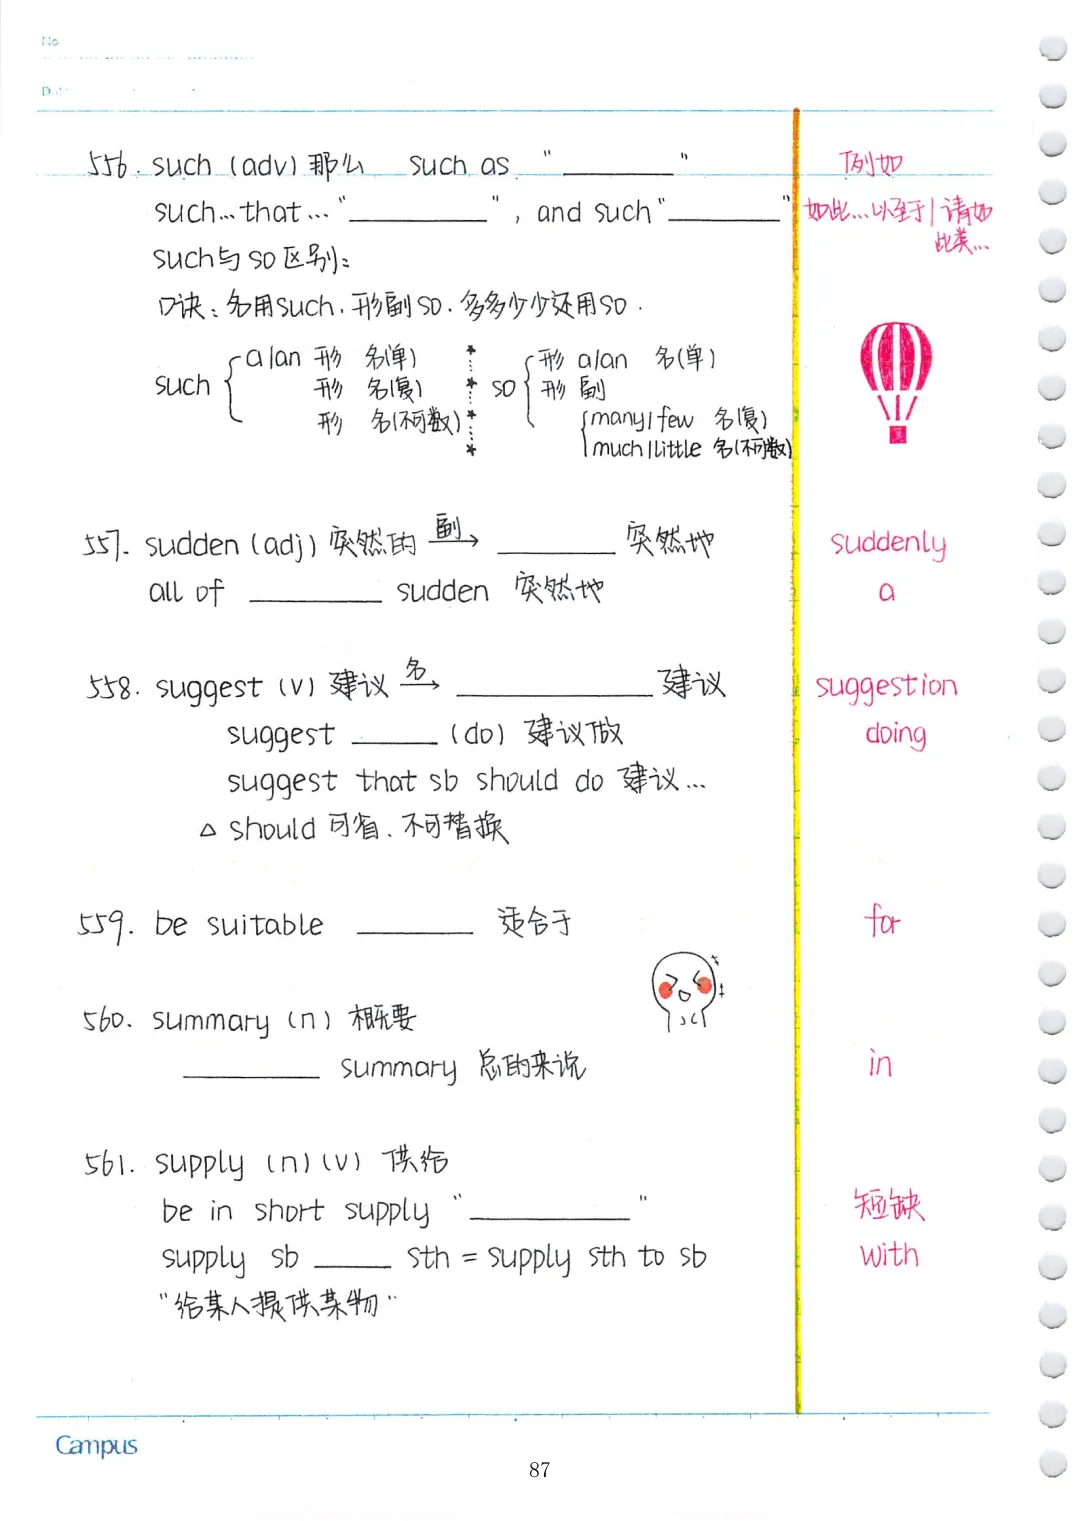 No
D
556. such (adv) 那么 such as "________" 例如
such…that…"________", and such"________" 如此…以至于/诸如此类…
such与so区别:
口诀:名用such.形副so.多多少少还用so.
such { a/an 形 名(单) so { 形 a/an 名(单)
形 名(复) 形 副
形 名(不可数) { many/few 名(复)
much/little 名(不可数)
557. sudden (adj) 突然的 副→ ________ 突然地 suddenly
all of ________ sudden 突然地 a
558. suggest (v) 建议 名→ ________ 建议 suggestion
suggest ________ (do) 建议做 doing
suggest that sb should do 建议…
△ should 可省.不可替换
559. be suitable ________ 适合于 for
560. summary (n) 概要
________ summary 总的来说 in
561. supply (n) (v) 供给
be in short supply "________" 短缺
supply sb ________ sth = supply sth to sb with
"给某人提供某物"
Campus
87